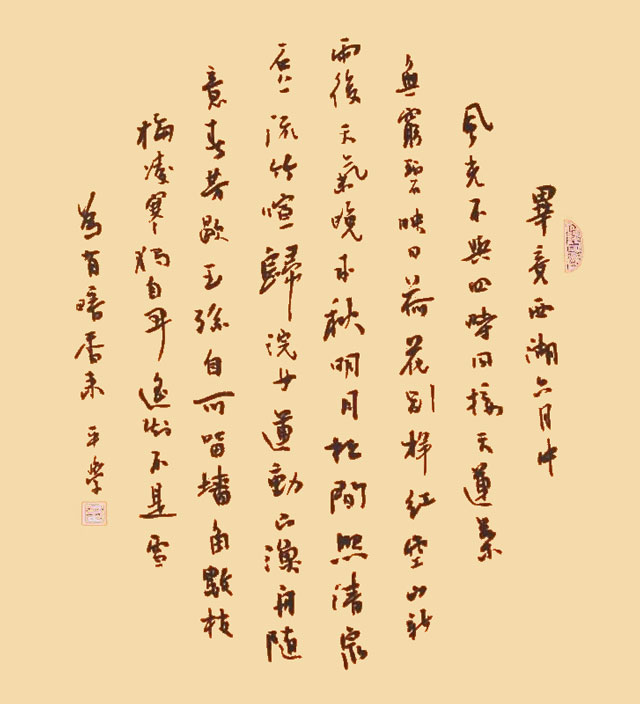 畢竟西湖六月中
風光不與四時同接天蓮葉
無窮碧映日荷花別樣紅空山新
雨後天氣晚來秋明月松間照清泉
石上流竹喧歸浣女蓮動下漁舟隨
意春芳歇王孫自可留墻角數枝
梅凌寒獨自開遙知不是雪
為有暗香來 平學